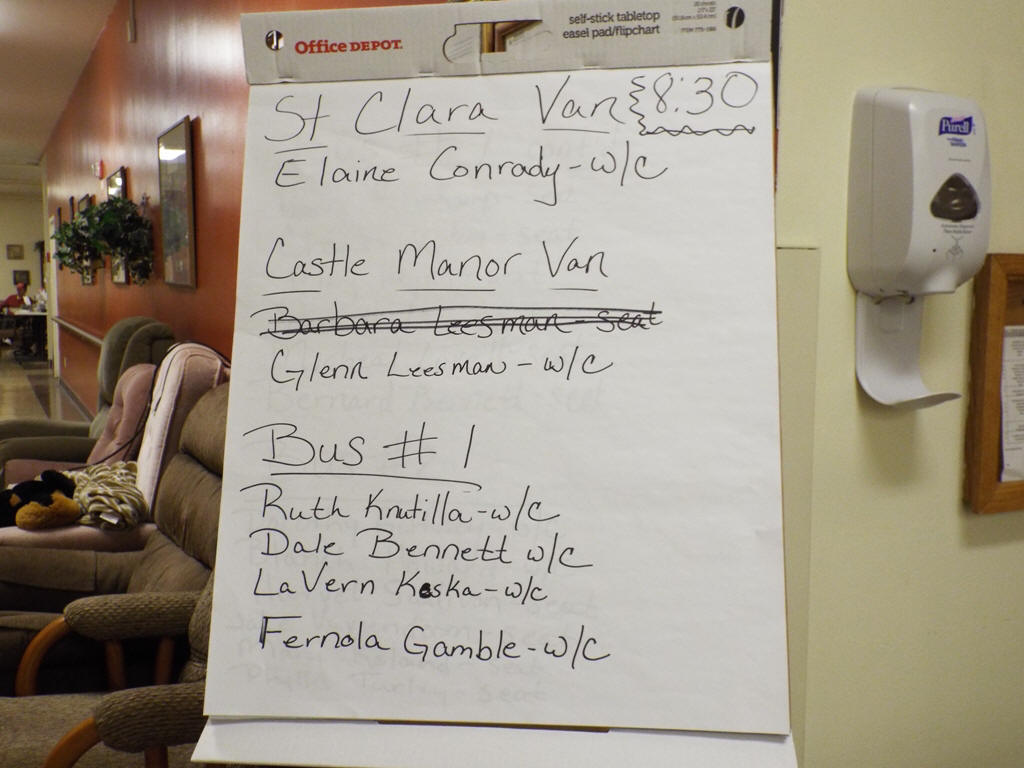 Office DEPOT.
self-stick tabletop
easel pad/flipchart
St Clara Van 8:30
Elaine Conrady - w/c
Castle Manor Van
Barbara Leesman - seat
Glenn Leesman - w/c
Bus # 1
Ruth Knutilla - w/c
Dale Bennett w/c
LaVern Koska - w/c
Fernola Gamble - w/c
Purell